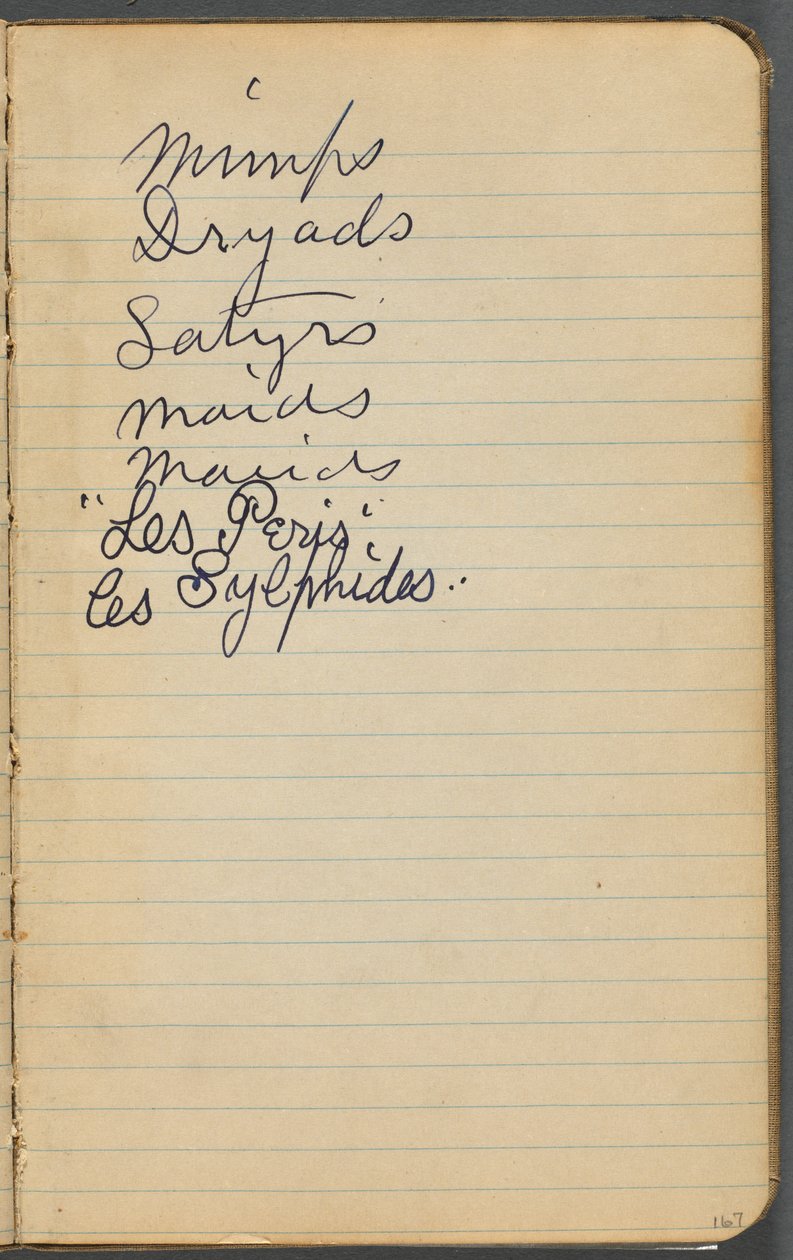 Mimps
Dryads
Satyrs
Maids
"Les Peris".
Les Sylphides..
167